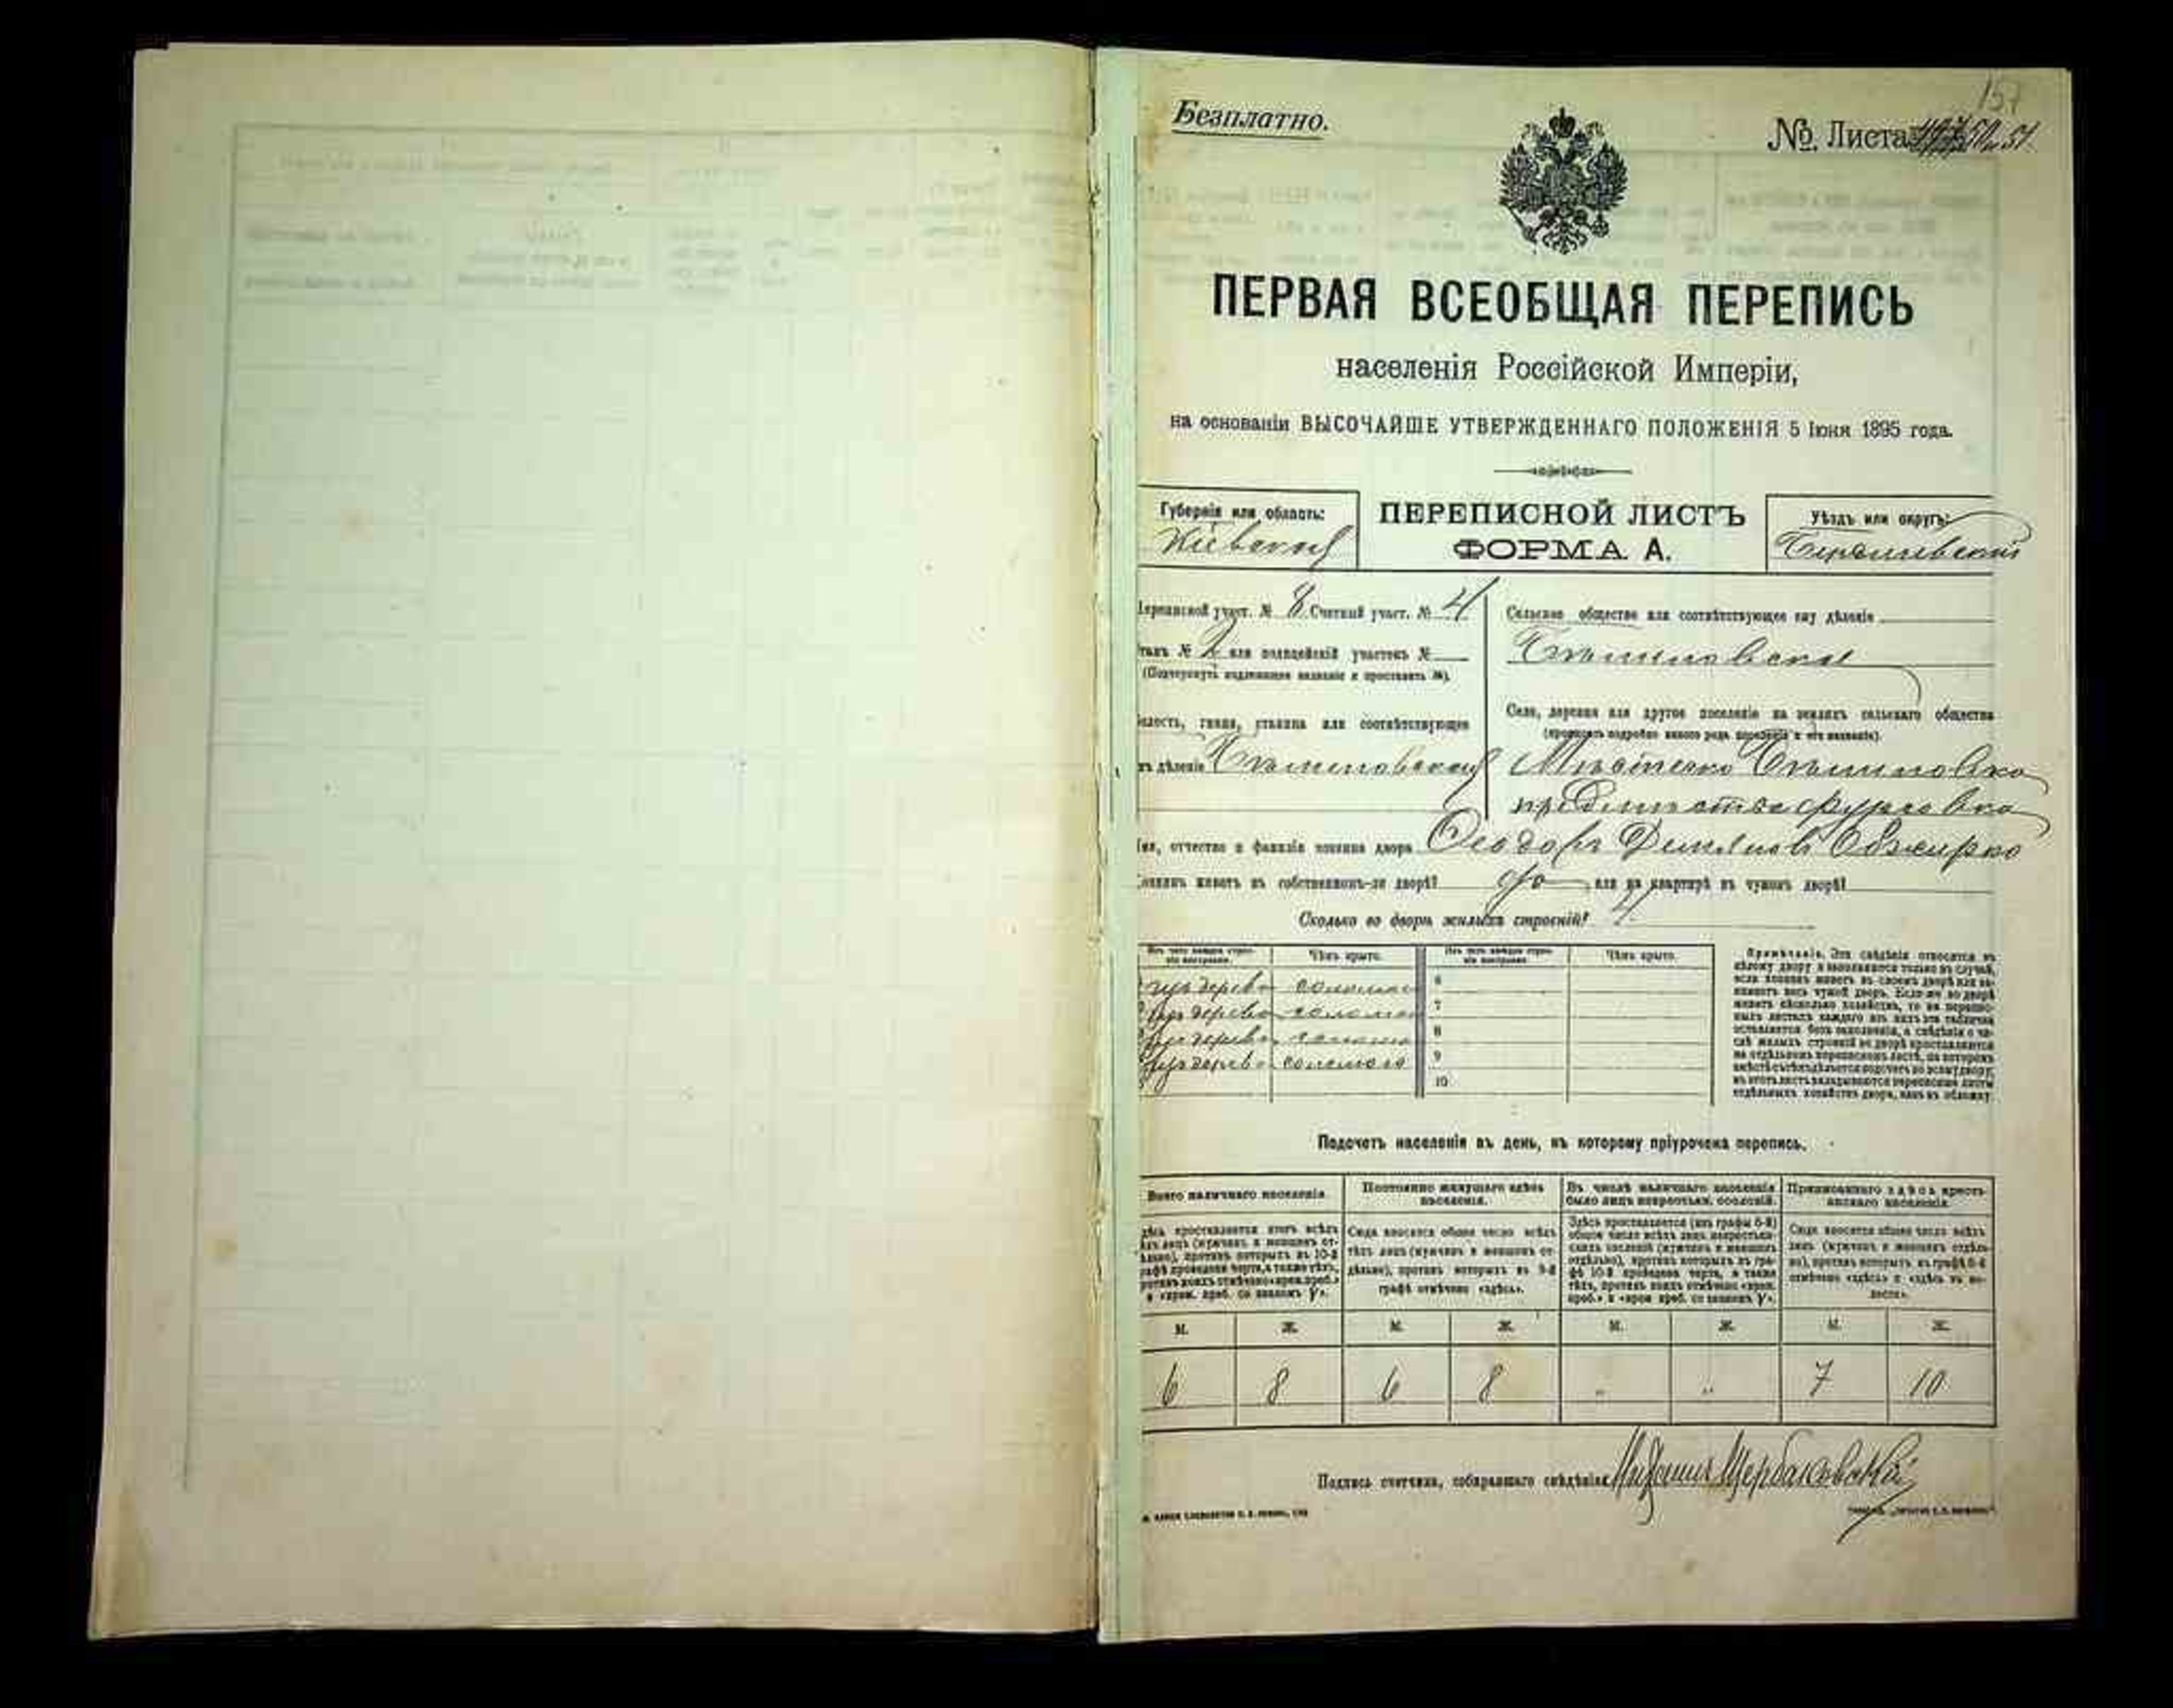 157
Безплатно.
№ Листа 50 и 51.
ПЕРВАЯ ВСЕОБЩАЯ ПЕРЕПИСЬ
населенія Россійской Имперіи,
на основаніи ВЫСОЧАЙШЕ УТВЕРЖДЕННАГО ПОЛОЖЕНІЯ 5 Іюня 1895 года.
Губернія или область:
Кіевская
ПЕРЕПИСНОЙ ЛИСТЪ
ФОРМА А.
Уѣздъ или округъ:
ереписной участ. № 8 Счетный участ. № 4
танъ № 2 или полицейскій участокъ №
(Подчеркнуть надлежащее названіе и проставить №).
олость, гмина, станица или соотвѣтствующее
ъ дѣленіе
Сельское общество или соотвѣтствующее ему дѣленіе
Село, деревня или другое поселеніе на земляхъ сельскаго общества
(прописать подробно какого рода поселеніе и его названіе).
Мѣстечко
предмѣстье
мя, отчество и фамилія хозяина двора Ѳеодоръ Демьяновъ Обжирко
озяинъ живетъ въ собственномъ-ли дворѣ? да или на квартирѣ въ чужомъ дворѣ?
Сколько во дворѣ жилыхъ строеній? 4
Изъ чего каждое строеніе построено.
Чѣмъ крыто.
Изъ чего каждое строеніе построено.
Чѣмъ крыто.
дерева соломою 6
дерева соломою 7
дерева соломою 8
дерева соломою 9
10
Примѣчаніе. Эти свѣдѣнія относятся къ
цѣлому двору и заполняются только въ случаѣ,
если хозяинъ живетъ въ своемъ дворѣ или за-
нимаетъ весь чужой дворъ. Если-же во дворѣ
живетъ нѣсколько хозяйствъ, то на перепис-
ныхъ листахъ каждаго изъ нихъ эта табличка
оставляется безъ заполненія, а свѣдѣнія о чи-
слѣ жилыхъ строеній во дворѣ проставляются
на отдѣльномъ переписномъ листѣ, на которомъ
вмѣстѣ съ тѣмъ дѣлается подсчетъ по всему двору;
въ этотъ листъ вкладываются переписные листы
отдѣльныхъ хозяйствъ двора, какъ въ обложку.
Подсчетъ населенія въ день, къ которому пріурочена перепись.
Всего наличнаго населенія.
Постоянно живущаго здѣсь населенія.
Въ числѣ наличнаго населенія было лицъ некрестьян. сословій.
Приписаннаго здѣсь крестьянскаго населенія.
дѣсь проставляется итогъ всѣхъ
ъ лицъ (мужчинъ и женщинъ от-
ѣльно), противъ которыхъ въ 10-й
рафѣ проведена черта, а также тѣхъ,
ротивъ коихъ отмѣчено «врем. преб.»
и «врем. преб. со знакомъ V».
Сюда вносится общее число всѣхъ
тѣхъ лицъ (мужчинъ и женщинъ от-
дѣльно), противъ которыхъ въ 9-й
графѣ отмѣчено «здѣсь».
Здѣсь проставляется (изъ графы 6-й)
общее число всѣхъ лицъ некрестьян-
скихъ сословій (мужчинъ и женщинъ
отдѣльно), противъ которыхъ въ гра-
фѣ 10-й проведена черта, а также
тѣхъ, противъ коихъ отмѣчено «врем.
преб.» и «врем. преб. со знакомъ V».
Сюда вносится общее число всѣхъ
лицъ (мужчинъ и женщинъ отдѣль-
но), противъ которыхъ въ графѣ 8-й
отмѣчено «здѣсь» и «здѣсь въ во-
лости».
М. Ж. М. Ж. М. Ж. М. Ж.
6 8 6 8 " " 7 10
Подпись счетчика, собиравшаго свѣдѣнія Щербаковскій